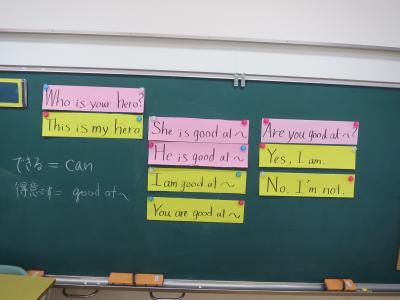 Who is your hero?
This is my hero.
できる = can
得意です= good at～
She is good at～
He is good at～
I am good at～
You are good at～
Are you good at～?
Yes, I am.
No. I'm not.